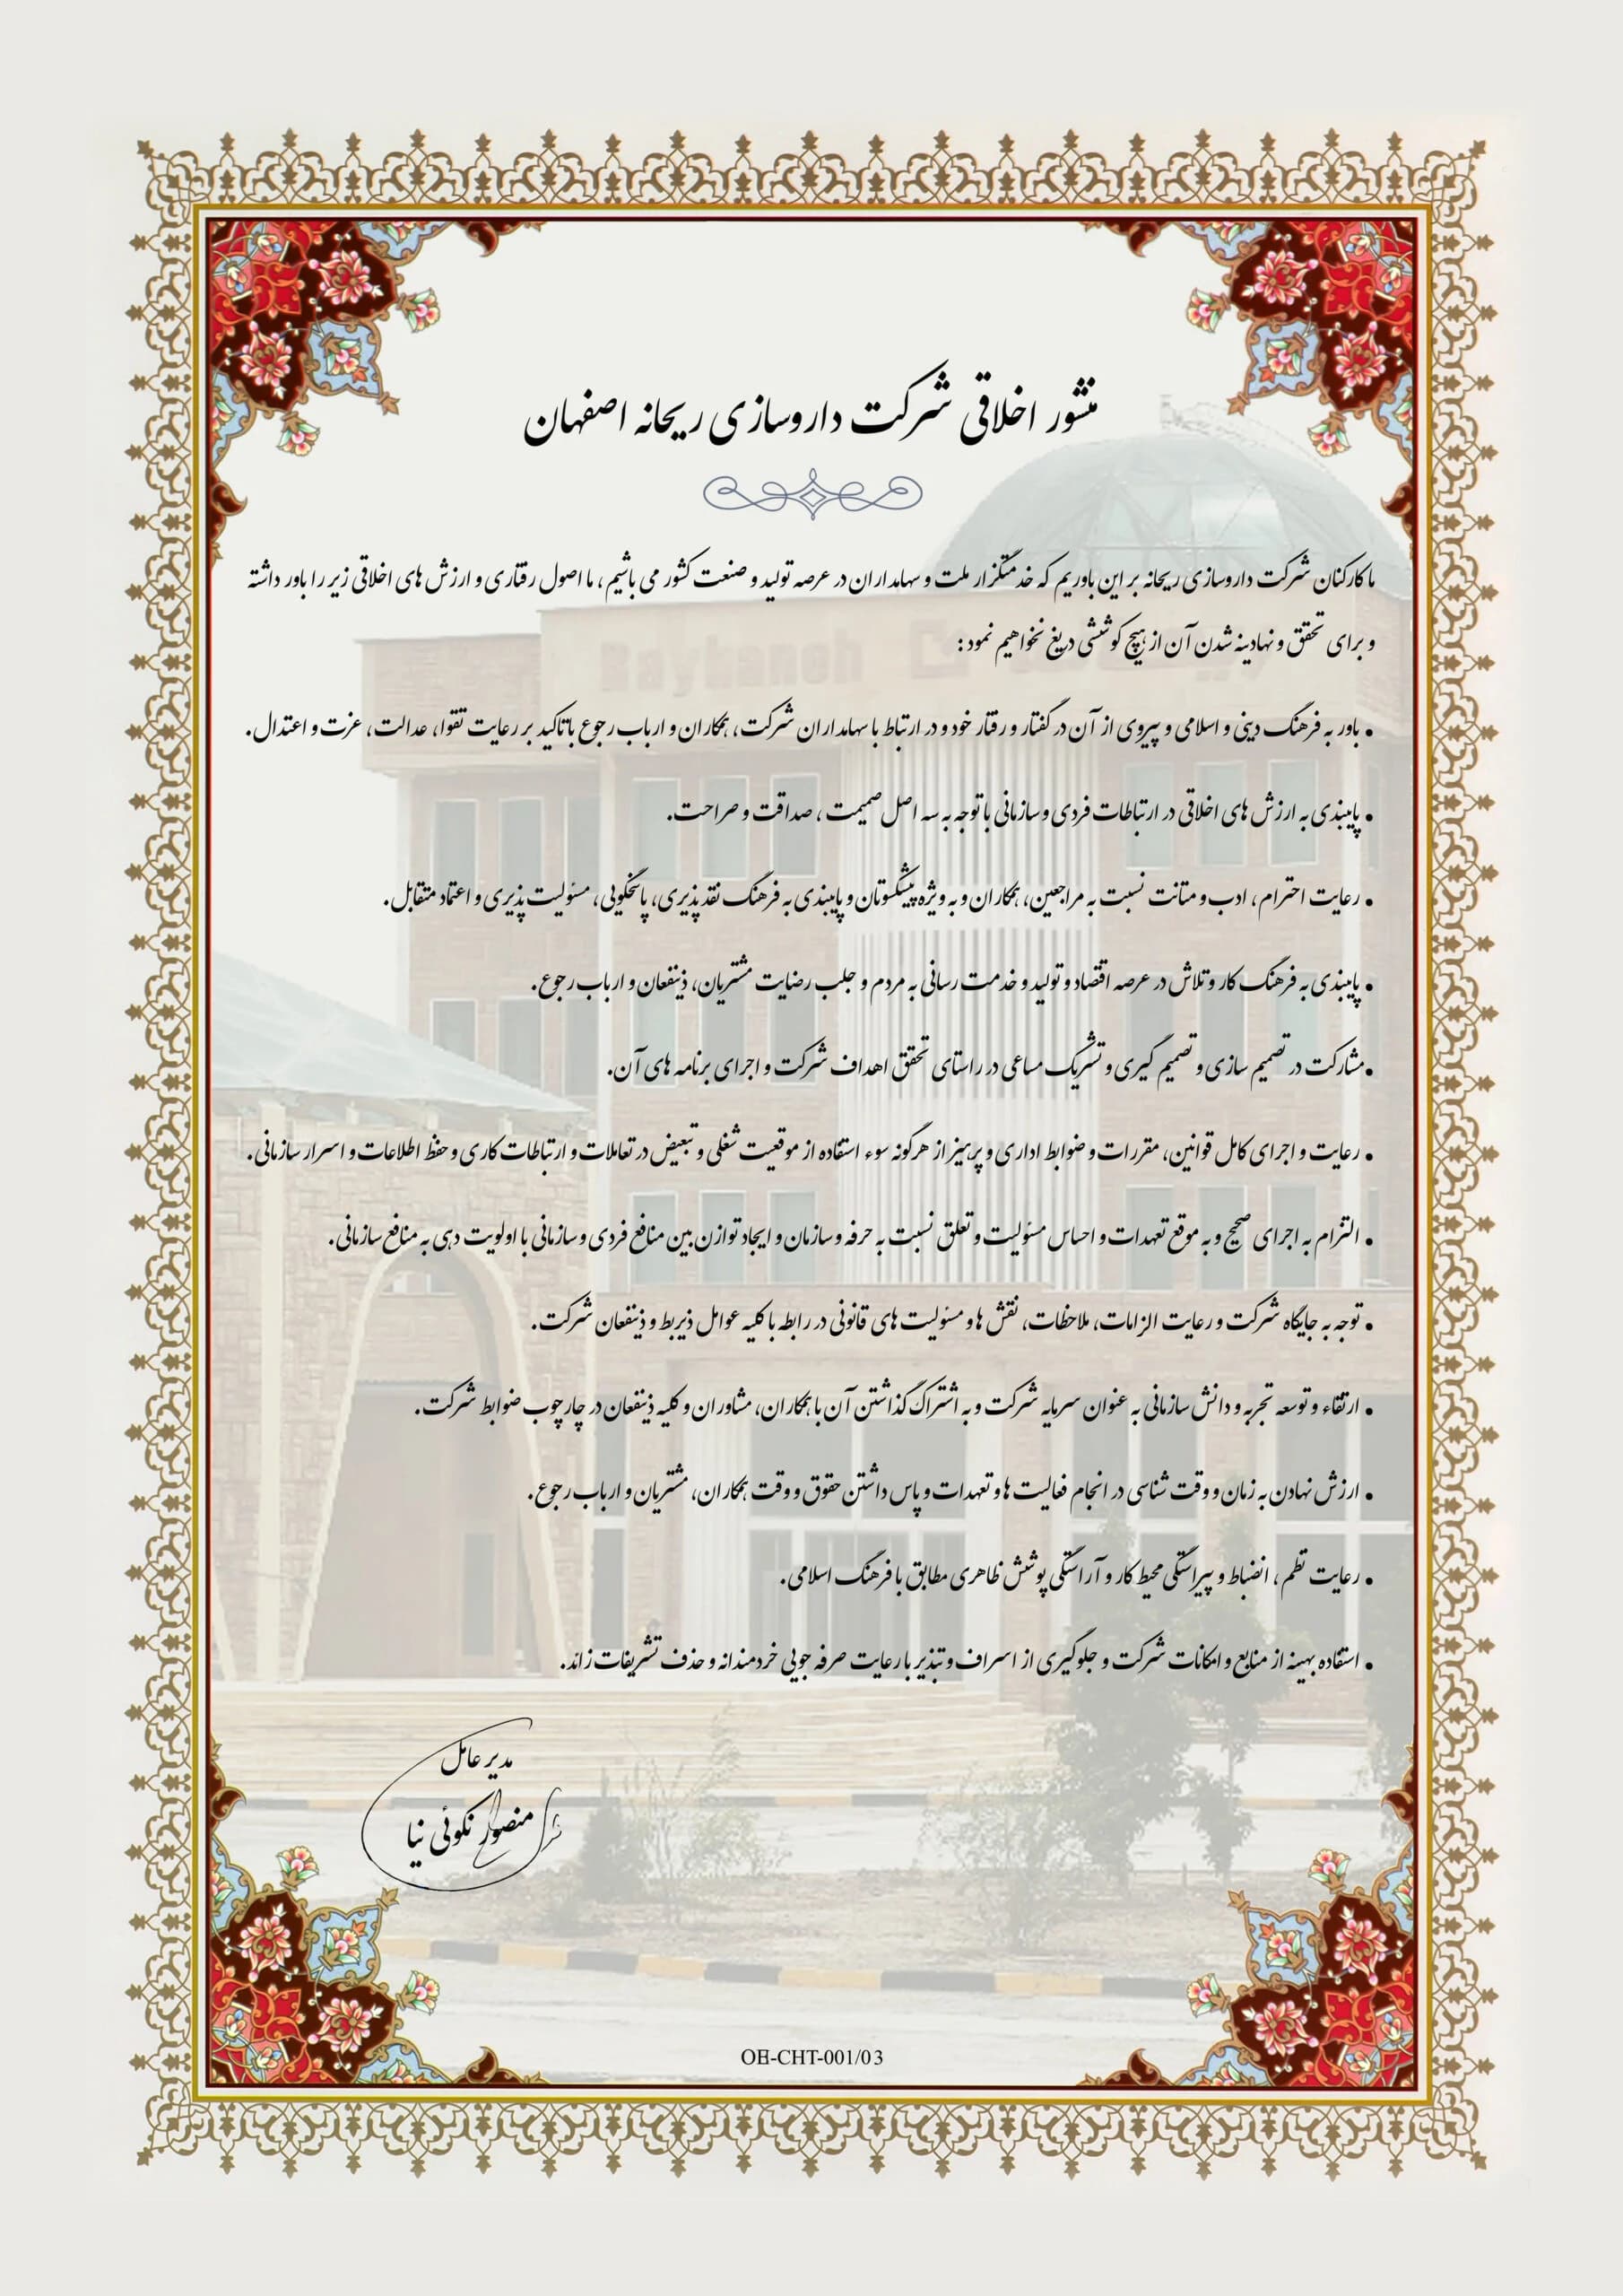 منشور اخلاقی شرکت داروسازی ریحانه اصفهان
ما کارکنان شرکت داروسازی ریحانه بر این باوریم که خدمتگزار ملت و سهامداران در عرصه تولید و صنعت کشور می باشیم، ما اصول رفتاری و ارزش های اخلاقی زیر را باور داشته
و برای تحقق و نهادینه شدن آن از هیچ کوششی دریغ نخواهیم نمود:
• باور به فرهنگ دینی و اسلامی و پیروی از آن در گفتار و رفتار خود و در ارتباط با سهامداران شرکت، همکاران و ارباب رجوع با تاکید بر رعایت تقوا، عدالت، عزت و اعتدال.
• پایبندی به ارزش های اخلاقی در ارتباطات فردی و سازمانی با توجه به سه اصل صمیمت، صداقت و صراحت.
• رعایت احترام، ادب و متانت نسبت به مراجعین، همکاران و به ویژه پیشکسوتان و پایبندی به فرهنگ نقد پذیری، پاسخگویی، مسئولیت پذیری و اعتماد متقابل.
• پایبندی به فرهنگ کار و تلاش در عرصه اقتصاد و تولید و خدمت رسانی به مردم و جلب رضایت مشتریان، ذینفعان و ارباب رجوع.
• مشارکت در تصمیم سازی و تصمیم گیری و تشریک مساعی در راستای تحقق اهداف شرکت و اجرای برنامه های آن.
• رعایت و اجرای کامل قوانین، مقررات و ضوابط اداری و پرهیز از هرگونه سوء استفاده از موقعیت شغلی و تبعیض در تعاملات و ارتباطات کاری و حفظ اطلاعات و اسرار سازمانی.
• التزام به اجرای صحیح و به موقع تعهدات و احساس مسئولیت و تعلق نسبت به حرفه و سازمان و ایجاد توازن بین منافع فردی و سازمانی با اولویت دهی به منافع سازمانی.
• توجه به جایگاه شرکت و رعایت الزامات، ملاحظات، نقش ها و مسئولیت های قانونی در رابطه با کلیه عوامل ذیربط و ذینفعان شرکت.
• ارتقاء و توسعه تجربه و دانش سازمانی به عنوان سرمایه شرکت و به اشتراک گذاشتن آن با همکاران، مشاوران و کلیه ذینفعان در چارچوب ضوابط شرکت.
• ارزش نهادن به زمان و وقت شناسی در انجام فعالیت ها و تعهدات و پاس داشتن حقوق و وقت همکاران، مشتریان و ارباب رجوع.
• رعایت نظم، انضباط و پیراستگی محیط کار و آراستگی پوشش ظاهری مطابق با فرهنگ اسلامی.
• استفاده بهینه از منابع و امکانات شرکت و جلوگیری از اسراف و تبذیر با رعایت صرفه جویی خردمندانه و حذف تشریفات زائد.
مدیر عامل
منصور نکوئی نیا
OE-CHT-001/03